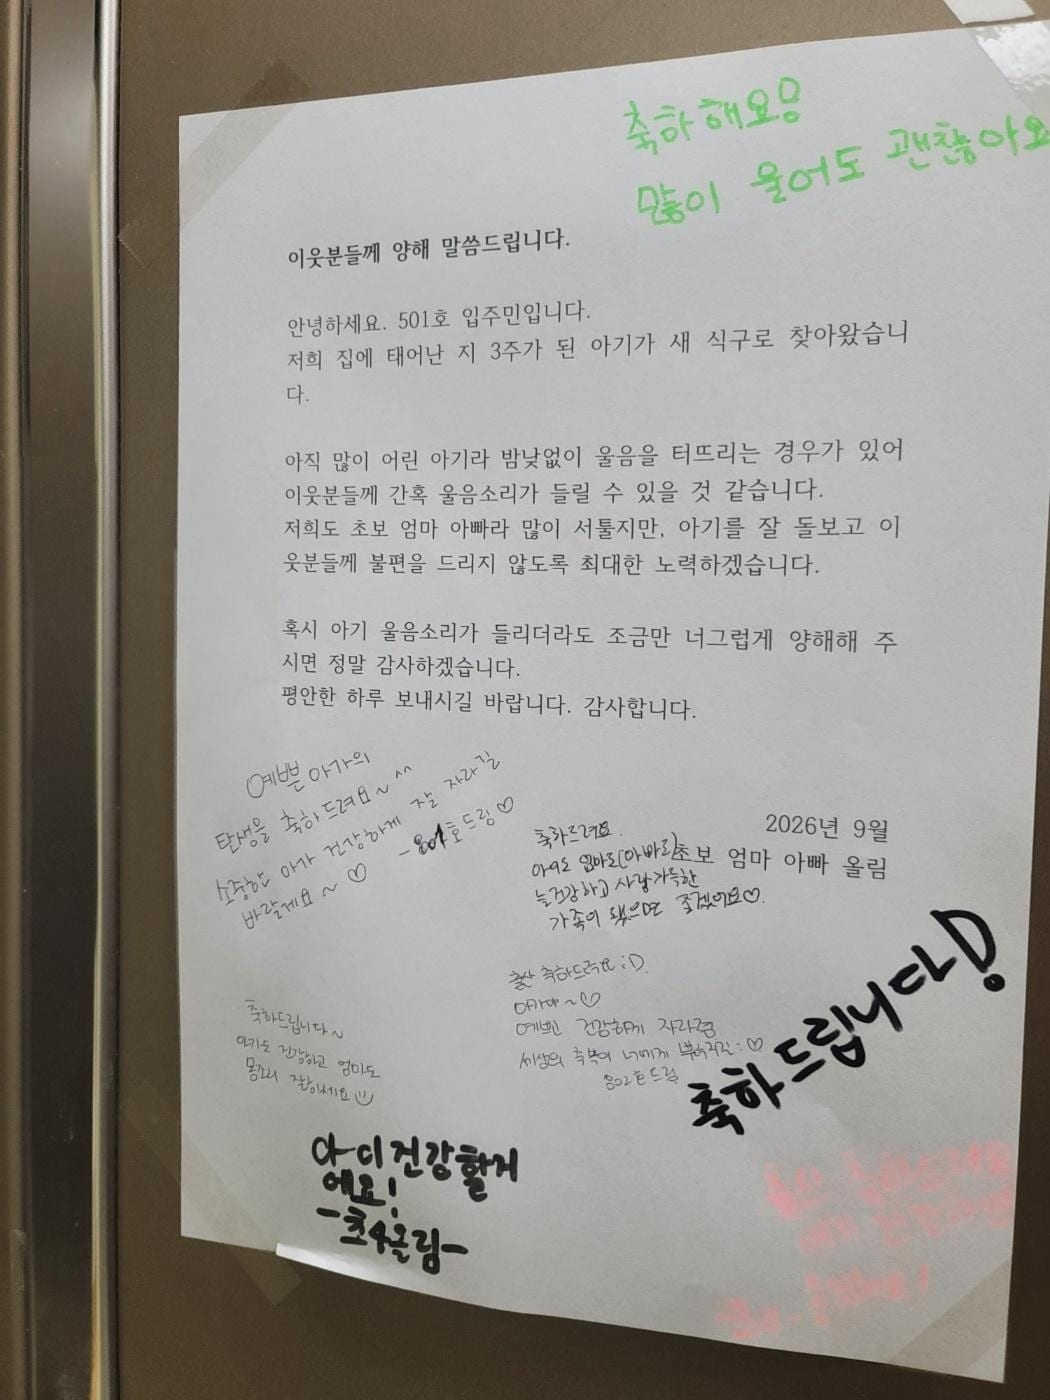 축하해요용
많이 울어도 괜찮아요
이웃분들께 양해 말씀드립니다.
안녕하세요. 501호 입주민입니다.
저희 집에 태어난 지 3주가 된 아기가 새 식구로 찾아왔습니
다.
아직 많이 어린 아기라 밤낮없이 울음을 터뜨리는 경우가 있어
이웃분들께 간혹 울음소리가 들릴 수 있을 것 같습니다.
저희도 초보 엄마 아빠라 많이 서툴지만, 아기를 잘 돌보고 이
웃분들께 불편을 드리지 않도록 최대한 노력하겠습니다.
혹시 아기 울음소리가 들리더라도 조금만 너그럽게 양해해 주
시면 정말 감사하겠습니다.
평안한 하루 보내시길 바랍니다. 감사합니다.
예쁜 아가의
탄생을 축하드려요~ ^^
소중한 아가 건강하게 잘 자라길
바랄게요~ ♡
-801호 드림♡
2026년 9월
초보 엄마 아빠 올림
축하드려요.
아이도 엄마도(아빠도)
늘 건강하고 사랑가득한
가족이 됐으면 좋겠어요♡.
출산 축하드려요 :D
아가야~♡
예쁘고 건강하게 자라렴
세상의 축복이 너에게 :♡
802호 드림
축하드립니다~
아가도 건강하고 엄마도
몸조리 잘하세요
축하드립니다!
아이 건강할거
에요!
-초4올림-